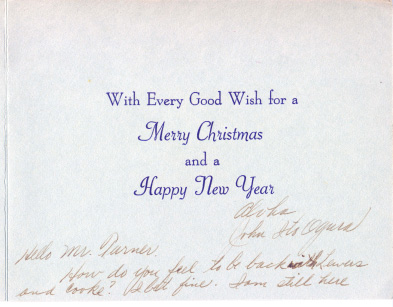 With Every Good Wish for a
Merry Christmas
and a
Happy New Year
Aloha
John Ogura
Hello Mr. Turner
How do you feel to be back with Lewers
and Cooke? fine. I am still here